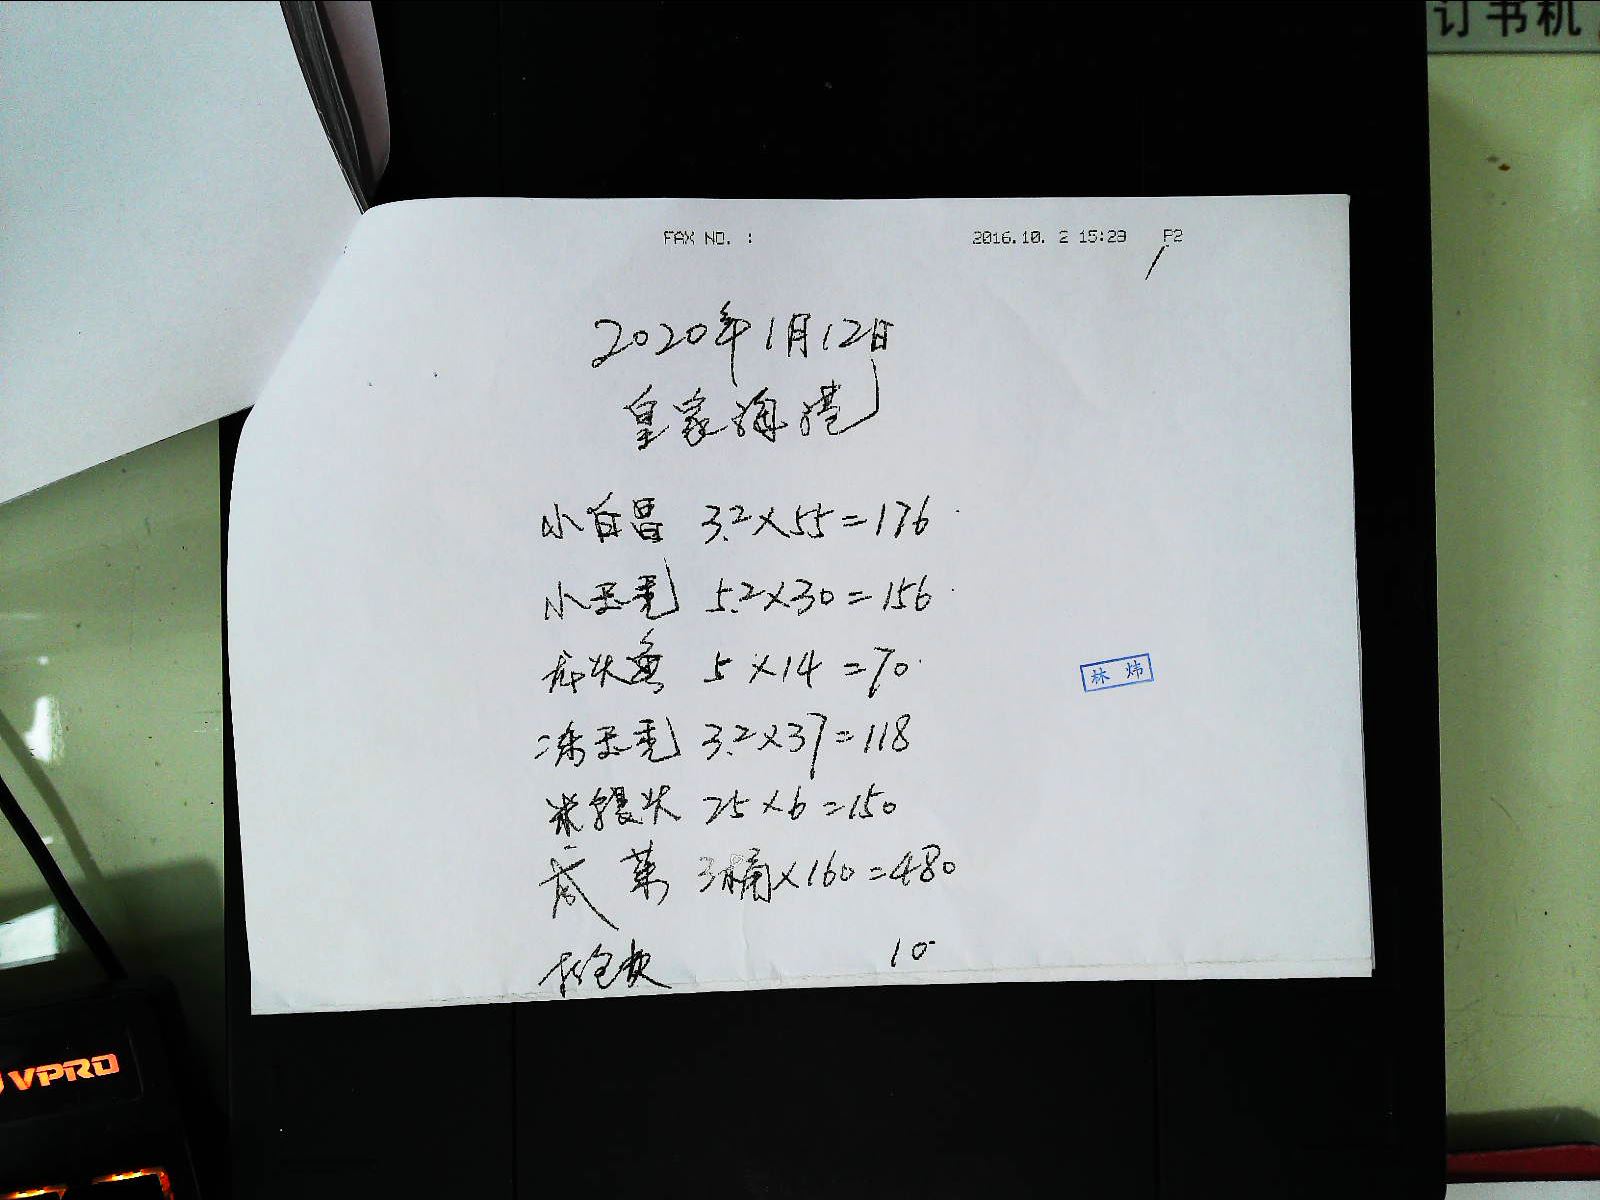 订书机
FAX NO. :
2016.10. 2 15:29 P2
2020年1月12日
皇家海港
小白昌 3.2×55=176
小玉秃 5.2×30=156
龙头鱼 5×14=70
冻玉秃 3.2×37=118
米馒头 25×6=150
咸菜 3桶×160=480
10
林炜
VPRO